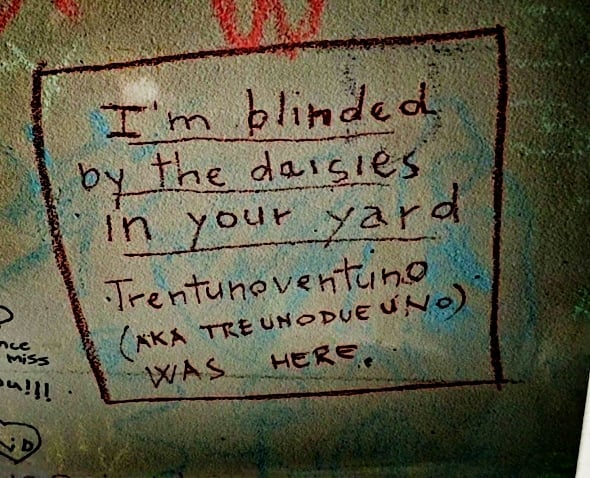 I'm blinded
by the daisies
in your yard
Trentunoventuno
(AKA TREUNODUEUNO)
WAS HERE.
miss